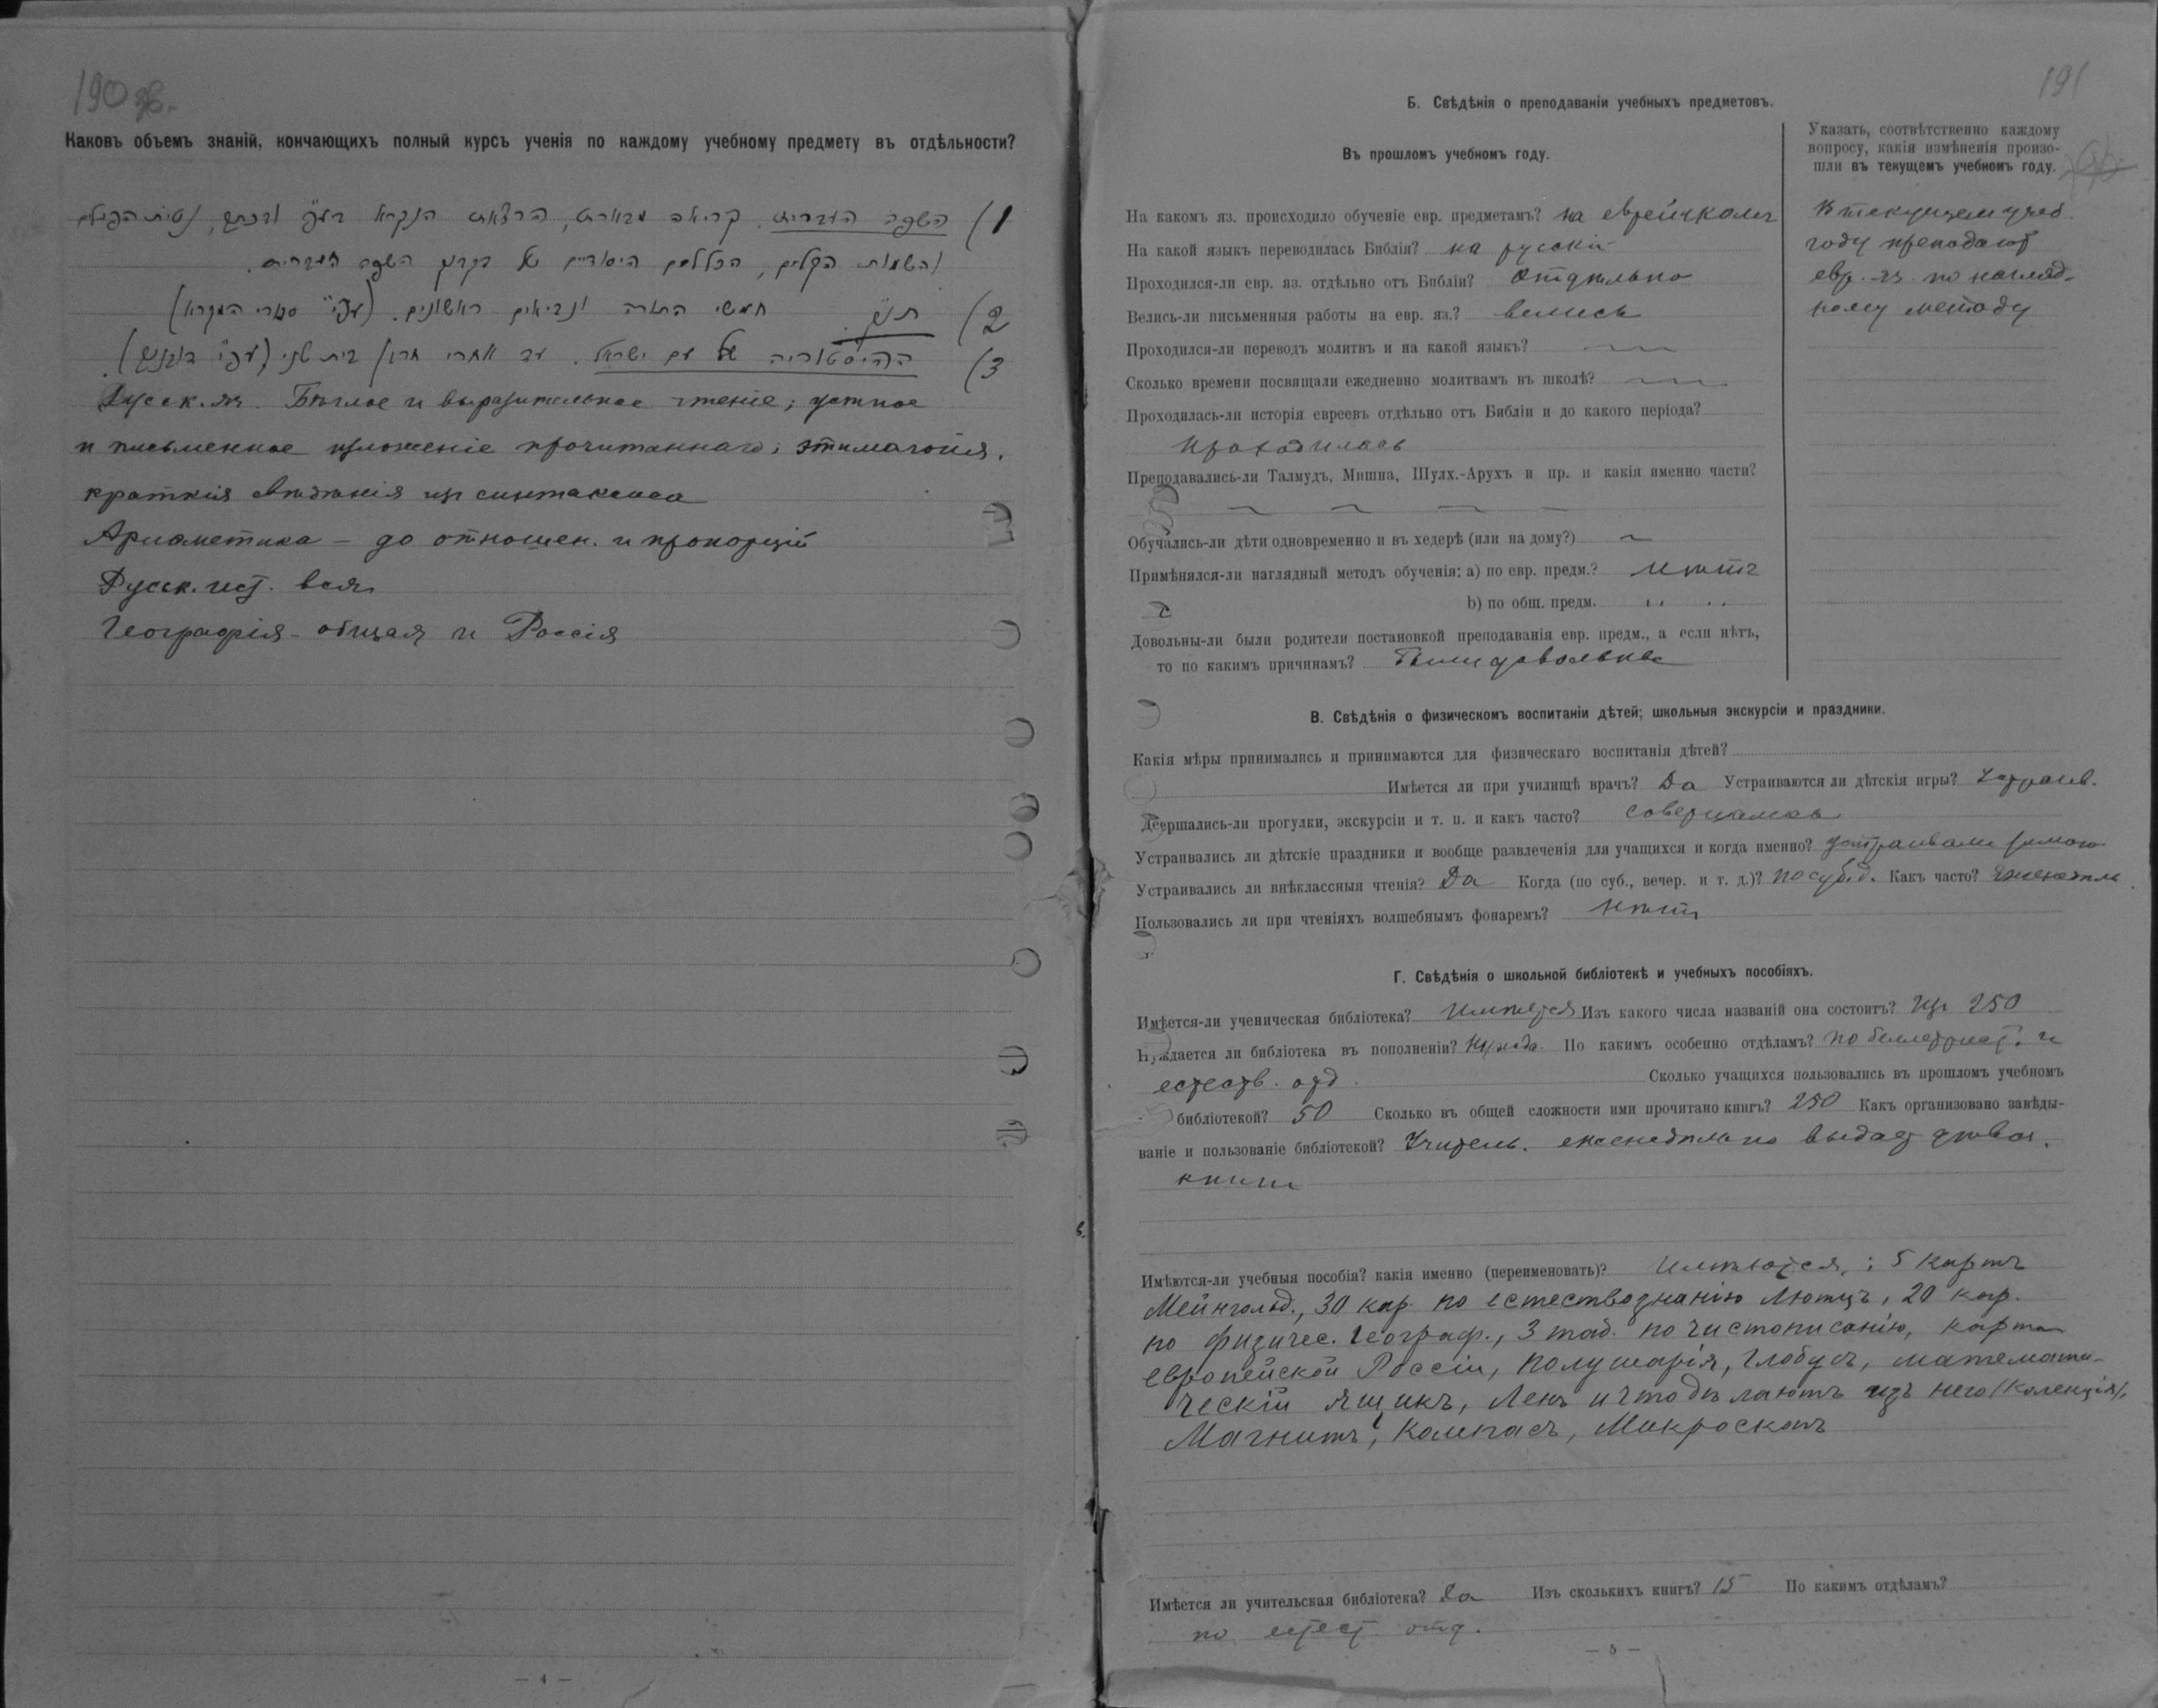 190 об.
Каковъ объемъ знаній, кончающихъ полный курсъ ученія по каждому учебному предмету въ отдѣльности?
1) השפה העברית. קריאה מבארת, הרצאת הנקרא בע"פ ובכתב, נטית הפעלים
והשמות הקלים, הכללים היסודיים של דקדוק השפה העברית.
2) תנ"ך. חמשי התורה ונביאים ראשונים. (עפ"י ספרי המקרא)
3) ההיסטוריה של עם ישראל. עד אחרי חרבן בית שני (עפ"י דובנוב).
Русск. яз. Бѣглое и выразительное чтеніе; устное
и письменное изложеніе прочитаннаго; этимологія,
краткія свѣдѣнія изъ синтаксиса
Ариѳметика – до отношен. и пропорцій
Русск. ист. вся
Географія – общая и Россія
— 4 —
191
Б. Свѣдѣнія о преподаваніи учебныхъ предметовъ.
Въ прошломъ учебномъ году.
Указать, соотвѣтственно каждому
вопросу, какія измѣненія произо-
шли въ текущемъ учебномъ году.
На какомъ яз. происходило обученіе евр. предметамъ? на еврейскомъ
На какой языкъ переводилась Библія? на русскій
Проходился-ли евр. яз. отдѣльно отъ Библіи? Отдѣльно
Велись-ли письменныя работы на евр. яз.? велись
Проходился-ли переводъ молитвъ и на какой языкъ? —
Сколько времени посвящали ежедневно молитвамъ въ школѣ? —
Проходилась-ли исторія евреевъ отдѣльно отъ Библіи и до какого періода?
проходилась
Преподавались-ли Талмудъ, Мишна, Шулх.-Арухъ и пр. и какія именно части?
— — — —
Обучались-ли дѣти одновременно и въ хедерѣ (или на дому?) —
Примѣнялся-ли наглядный методъ обученія: a) по евр. предм.? Нѣтъ
b) по общ. предм. " "
Довольны-ли были родители постановкой преподаванія евр. предм., а если нѣтъ,
то по какимъ причинамъ? Были довольны
В текущем учеб.
году преподают
евр. яз. по нагляд-
ному методу
В. Свѣдѣнія о физическомъ воспитаніи дѣтей; школьныя экскурсіи и праздники.
Какія мѣры принимались и принимаются для физическаго воспитанія дѣтей?
Имѣется ли при училищѣ врачъ? Да Устраиваются ли дѣтскія игры? Устраив.
Совершались-ли прогулки, экскурсіи и т. п. и какъ часто? Совершались
Устраивались ли дѣтскіе праздники и вообще развлеченія для учащихся и когда именно? устраивали зимою
Устраивались ли внѣклассныя чтенія? Да Когда (по суб., вечер. и т. д.)? по субб. Какъ часто? Еженедѣль.
Пользовались ли при чтеніяхъ волшебнымъ фонаремъ? Нѣтъ
Г. Свѣдѣнія о школьной библіотекѣ и учебныхъ пособіяхъ.
Имѣется-ли ученическая библіотека? Имѣется Изъ какого числа названій она состоитъ? Изъ 250
Нуждается ли библіотека въ пополненіи? Нужда. По какимъ особенно отдѣламъ? по беллетрист. и
естеств. отд. Сколько учащихся пользовались въ прошломъ учебномъ
библіотекой? 50 Сколько въ общей сложности ими прочитано книгъ? 250 Какъ организовано завѣды-
ваніе и пользованіе библіотекой? Учитель. еженедѣльно выдает
книги
Имѣются-ли учебныя пособія? какія именно (переименовать)? Имѣются: 5 картъ
Мейнгольд., 30 кар. по естествознанію Лютцъ, 20 кар.
по физичес. Географ., 3 таб. по чистописанію, карта
европейской Россіи, полушарія, Глобусъ, математи-
ческій ящикъ, Ленъ и что дѣлаютъ изъ него (колекція),
Магнитъ, Компасъ, Микроскопъ
Имѣется ли учительская библіотека? Да Изъ сколькихъ книгъ? 15 По какимъ отдѣламъ?
по естест отд.
— 5 —